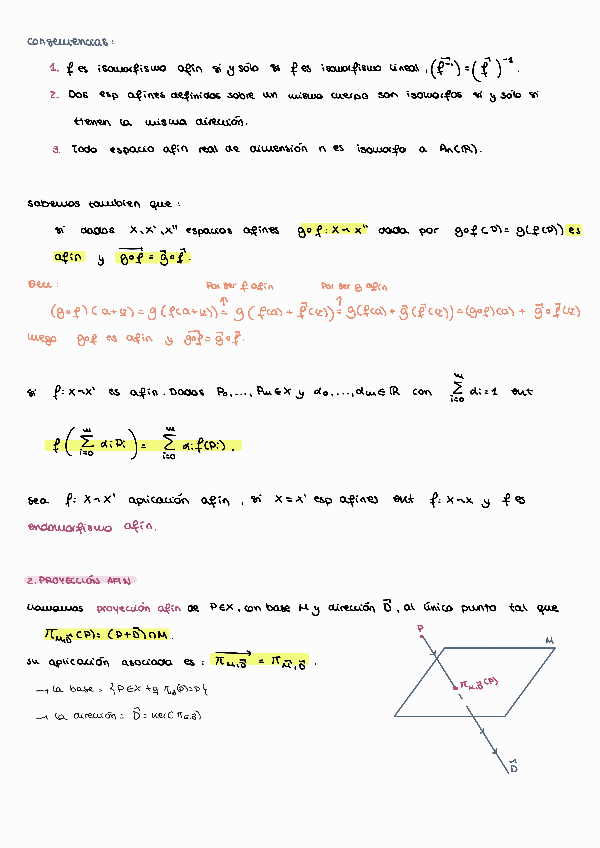 consecuencias:
1. f es isomorfismo afín si y sólo si f es isomorfismo lineal, (f⃗⁻¹) = (f⃗)⁻¹.
2. Dos esp afines definidos sobre un mismo cuerpo son isomorfos si y sólo si
tienen la misma dirección.
3. Todo espacio afín real de dimensión n es isomorfo a An(ℝ).
sabemos también que:
si dados X, X', X'' espacios afines g∘f: X→X'' dada por g∘f(P) = g(f(P)) es
afín y g∘f⃗ = g⃗∘f⃗.
Dem: Por ser f afín Por ser g afín
(g∘f)(a+u⃗) = g(f(a+u⃗)) = g(f(a) + f⃗(u⃗)) = g(f(a)) + g⃗(f⃗(u⃗)) = (g∘f)(a) + g⃗∘f⃗(u⃗)
luego g∘f es afín y g∘f⃗ = g⃗∘f⃗.
si f: X→X' es afín. Dados P₀,...,Pm ∈ X y α₀,...,αm ∈ ℝ con Σ_{i=0}^{m} αi = 1 ent
f(Σ_{i=0}^{m} αi Pi) = Σ_{i=0}^{m} αi f(Pi).
sea f: X→X' aplicación afín, si X = X' esp afines ent f: X→X y f es
endomorfismo afín.
2. PROYECCIÓN AFÍN
llamamos proyección afín de P∈X, con base M y dirección D⃗, al único punto tal que
π_{M,D⃗}(P) = (P+D⃗)∩M.
su aplicación asociada es: π_{M,D⃗} = π_{M⃗,D⃗}.
→ la base = {P∈X tq π_D(P)=P}
→ la dirección = D⃗ = Ker(π_{M,D})
P
M
π_{M,D⃗}(P)
D⃗